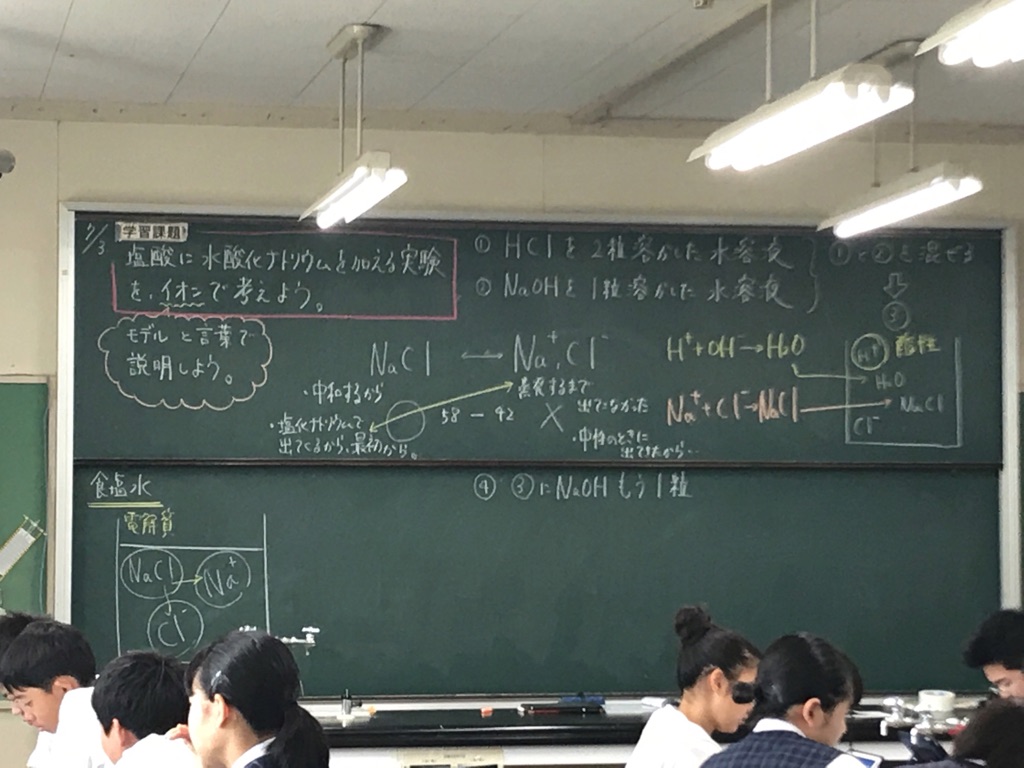 7/3
学習課題
塩酸に水酸化ナトリウムを加える実験
を、イオンで考えよう。
モデルと言葉で
説明しよう。
① HClを2粒溶かした水溶液
② NaOHを1粒溶かした水溶液
①と②を混ぜる
③
NaCl ⟷ Na⁺, Cl⁻
・中和するから
・塩化ナトリウムで
出てくるから、最初から。
58 − 42
蒸発するまで
出てなかった
・中性のときに
出てきたから…
H⁺+OH⁻→H₂O
Na⁺+Cl⁻→NaCl
H⁺ 酸性
H₂O
NaCl
Cl⁻
食塩水
電解質
NaCl → Na⁺
Cl⁻
④ ③にNaOHもう1粒